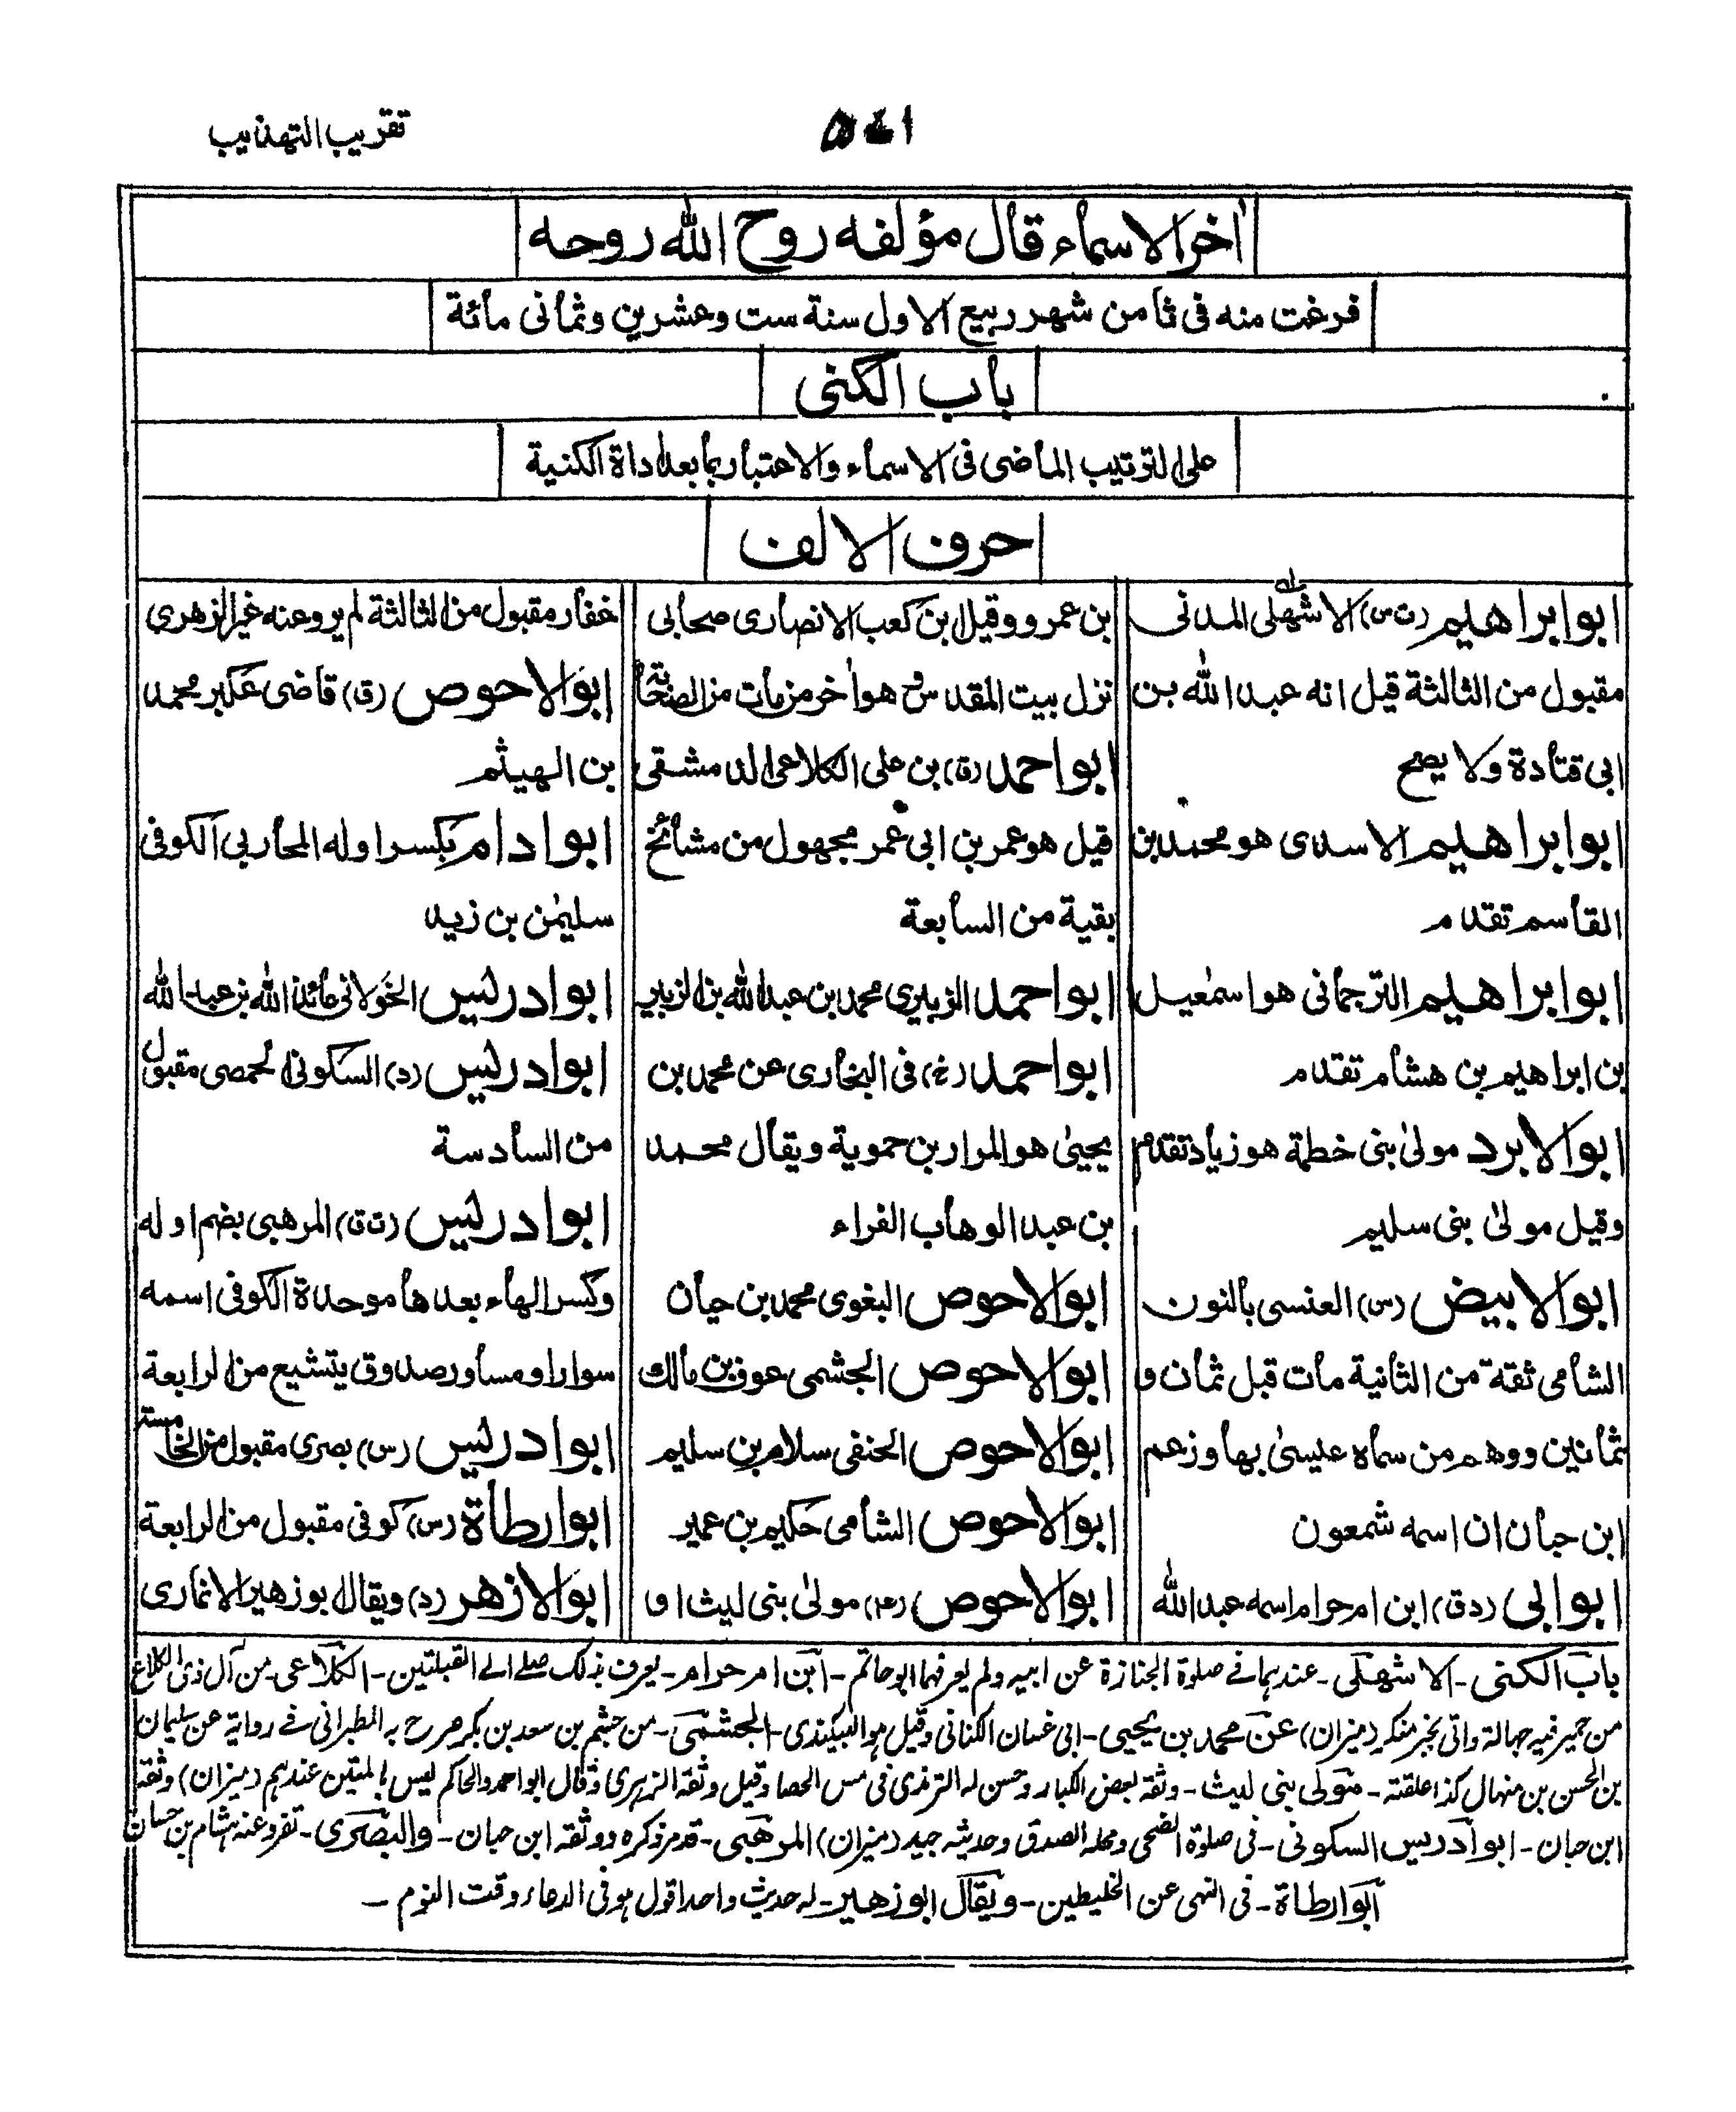 تقریب التهذیب
اٰخر الاسماء قال مؤلفه روح الله روحه
فرغت منه فی ثامن شهر ربیع الاول سنة ست وعشرین وثمانی مائة
باب الکنی
علی الترتیب الماضی فی الاسماء والاعتبار بما بعد اداة الکنیة
حرف الالف
ابو ابراهیم (ت س) الاشهلی المدنی
مقبول من الثالثة قیل انه عبد الله بن
ابی قتادة ولا یصح
ابو ابراهیم الاسدی هو محمد بن
القاسم تقدم
ابو ابراهیم الترجمانی هو اسمٰعیل
بن ابراهیم بن هشام تقدم
ابو الابرد مولیٰ بنی خطمة هو زیاد تقدم
وقیل مولیٰ بنی سلیم
ابو الابیض (س) العنسی بالنون
الشامی ثقة من الثانیة مات قبل ثمان و
ثمانین ووهم من سماه عیسیٰ بها وزعم
ابن حبان ان اسمه شمعون
ابو ابی (د ق) ابن ام حرام اسمه عبد الله
بن عمرو وقیل بن کعب الانصاری صحابی
نزل بیت المقدس وهو اٰخر من مات من الصحابة بها
ابو احمد (ق) بن علی الکلاعی الدمشقی
قیل هو عمر بن ابی عمر مجهول من مشائخ
بقیة من السابعة
ابو احمد الزبیری محمد بن عبد الله بن الزبیر
ابو احمد (خ) فی البخاری عن محمد بن
یحییٰ هو المرار بن حمویة ویقال محمد
بن عبد الوهاب الفراء
ابو الاحوص البغوی محمد بن حیان
ابو الاحوص الجشمی عوف بن مالک
ابو الاحوص الحنفی سلام بن سلیم
ابو الاحوص الشامی حکیم بن عمیر
ابو الاحوص (۴) مولیٰ بنی لیث او
غفار مقبول من الثالثة لم یرو عنه غیر الزهری
ابو الاحوص (ق) قاضی عکبر محمد
بن الهیثم
ابو ادام بکسر اوله المحاربی الکوفی
سلیمٰن بن زید
ابو ادریس الخولانی عائذ الله بن عبد الله
ابو ادریس (د) السکونی الحمصی مقبول
من السادسة
ابو ادریس (ت ق) المرهبی بضم اوله
وکسر الهاء بعدها موحدة الکوفی اسمه
سوار او مساور صدوق یتشیع من الرابعة
ابو ادریس (س) بصری مقبول من الخامسة
ابو ارطاة (س) کوفی مقبول من الرابعة
ابو الازهر (د) ویقال ابو زهیر الانماری
باب الکنی - الاشهلی - عندهما فی صلوة الجنازة عن ابیه ولم یعرفهما ابو حاتم - ابن ام حرام - یعرف بذلک صلے الی القبلتین - الکلاعی - من آل ذی الکلاع
من حمیر فیه جهالة واتی بخبر منکر (میزان) عن محمد بن یحیی - ابی غسان الکنانی وقیل هو البیکندی - الجشمی - من جشم بن سعد بن بکر صرح به الطبرانی فے روایة عن سلیمان
بن الحسن بن منهال کذا علقته - مولی بنی لیث - وثقه بعض الکبار وحسن له الترمذی فی مس الحصا وقیل وثقه الزهری وقال ابو احمد والحاکم لیس بالمتین عندهم (میزان) وثقه
ابن حبان - ابو ادریس السکونی - فی صلوة الضحی ومحله الصدق وحدیثه جید (میزان) المرهبی - قد مر ذکره ووثقه ابن حبان - والبصری - تفرد عنه هشام بن حسان
ابو ارطاة - فی النهی عن الخلیطین - ویقال ابو زهیر - له حدیث واحد اقول هو فی الدعاء وقت النوم -